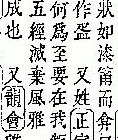 狀如漆筩而
作 又姓正字
何爲至要在我
五經滅棄風雅
成也 又韻會